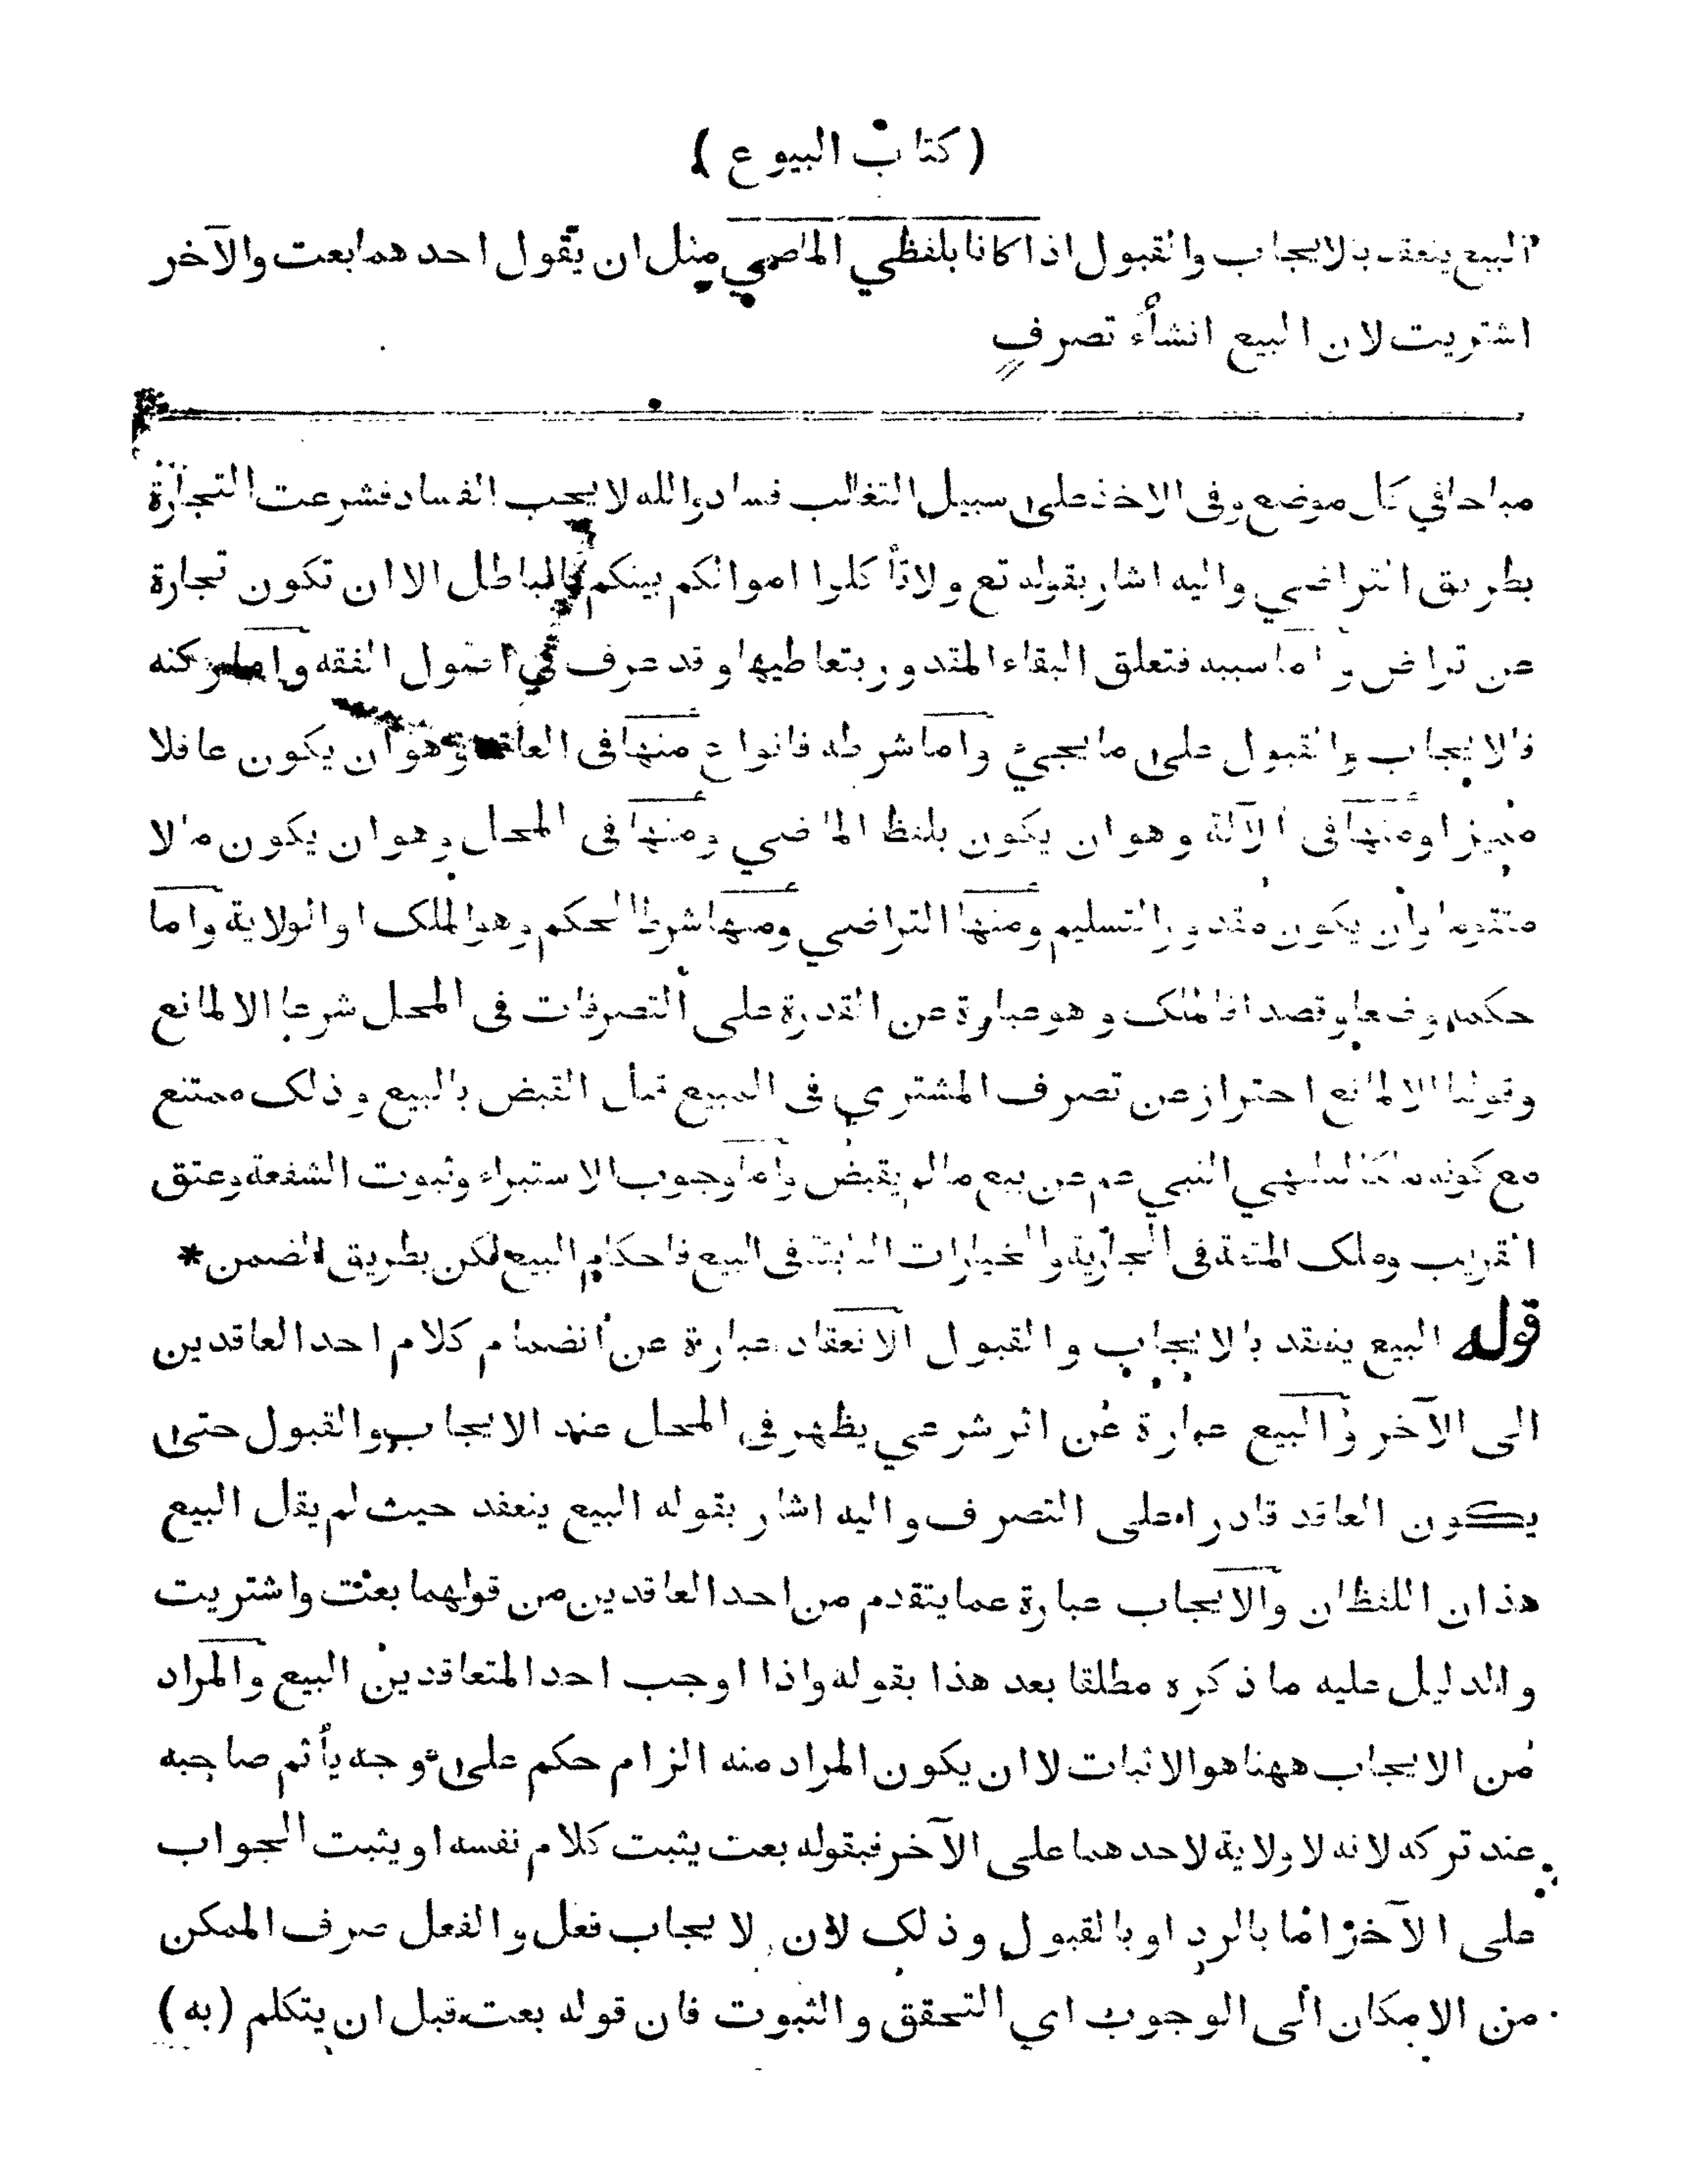 ( كتاب البيوع )
البيع ينعقد بالايجاب والقبول اذا كانا بلفظي الماضي مثل ان يقول احدهما بعت والآخر
اشتريت لان البيع انشاء تصرف
مباحا في كل موضع وفى الاخذ على سبيل التغالب فساد والله لا يحب الفساد فشرعت التجارة
بطريق التراضي واليه اشار بقوله تع ولا تأكلوا اموالكم بينكم بالباطل الا ان تكون تجارة
عن تراض و اما سببه فتعلق البقاء المقدور بتعاطيها وقد عرف في اصول الفقه واما ركنه
فالايجاب والقبول على ما يجيئ واما شرطه فانواع منها فى العاقد وهو ان يكون عاقلا
مميزا ومنها فى الآلة وهو ان يكون بلفظ الماضي ومنها فى المحل وهو ان يكون مالا
متقوما وان يكون مقدور التسليم ومنها التراضي ومنها شرط الحكم وهو الملك او الولاية واما
حكمه وضعا وقصدا فالملك وهو عبارة عن القدرة على التصرفات فى المحل شرعا الا لمانع
وقولنا الا لمانع احتراز عن تصرف المشتري فى المبيع قبل القبض بالبيع وذلك ممتنع
مع كونه مالكا لنهي النبي عم عن بيع مالم يقبض واما وجوب الاستبراء وثبوت الشفعة وعتق
القريب وملك المتعة فى الجارية والخيارات الثابتة فى البيع فاحكام البيع لكن بطريق الضمن *
قوله البيع ينعقد بالايجاب والقبول الانعقاد عبارة عن انضمام كلام احد العاقدين
الى الآخر والبيع عبارة عن اثر شرعي يظهر فى المحل عند الايجاب والقبول حتى
يكون العاقد قادرا على التصرف واليه اشار بقوله البيع ينعقد حيث لم يقل البيع
هذان اللفظان والايجاب عبارة عما يتقدم من احد العاقدين من قولهما بعت واشتريت
والدليل عليه ما ذكره مطلقا بعد هذا بقوله واذا اوجب احد المتعاقدين البيع والمراد
من الايجاب ههنا هو الاثبات لا ان يكون المراد منه الزام حكم على وجه يأثم صاحبه
عند تركه لانه لا ولاية لاحدهما على الآخر فبقوله بعت يثبت كلام نفسه او يثبت الجواب
على الآخر اما بالرد او بالقبول وذلك لان الايجاب فعل والفعل صرف الممكن
من الامكان الى الوجوب اي التحقق والثبوت فان قوله بعت قبل ان يتكلم (به)